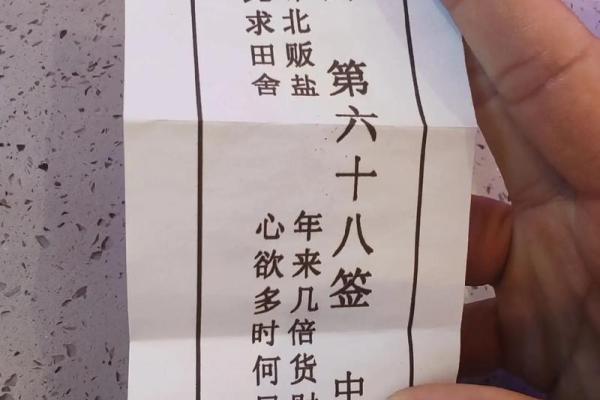 第六十八签 中
北贩盐 年来几倍货
求田舍 心欲多时何